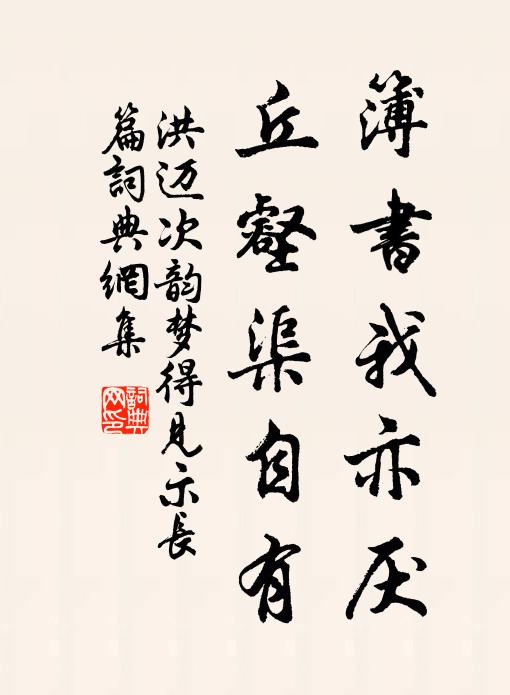 簿書我亦厌
丘壑渠自有
洪迈次韵梦得见示長
篇詞典網集
詞典网印